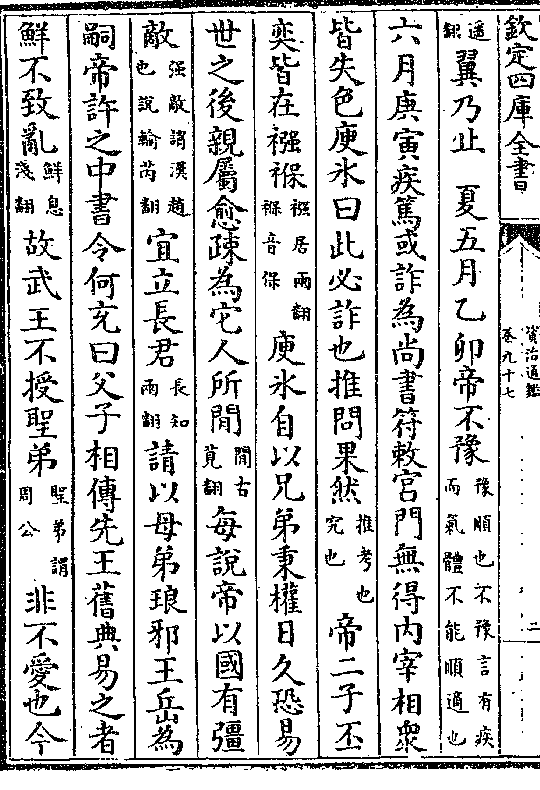 欽定四庫全書
資治通鑑
卷九十七
二
遥翻翼乃止　夏五月乙卯帝不豫豫順也不豫言有疾而氣體不能順適也
六月庚寅疾篤或詐為尚書符敕宮門無得内宰相衆
皆失色庾氷曰此必詐也推問果然推考也究也帝二子丕
奕皆在襁褓襁居兩翻褓音保庾氷自以兄弟秉權日久恐易
世之後親屬愈疎為它人所閒閒古莧翻每說帝以國有彊
敵强敵謂漢趙也說輸芮翻宜立長君長知兩翻請以母弟琅邪王岳為
嗣帝許之中書令何充曰父子相傳先王舊典易之者
鮮不致亂鮮息淺翻故武王不授聖弟聖弟謂周公非不愛也今